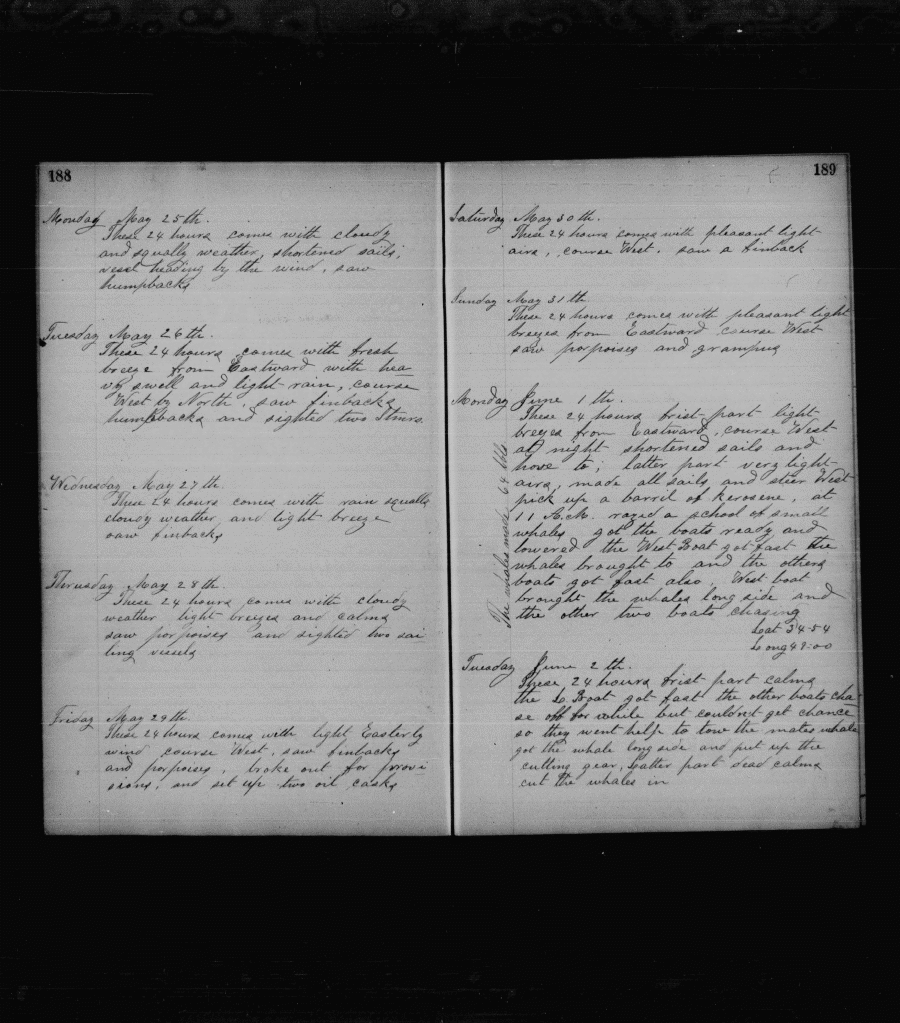 188
Monday May 25th.
These 24 hours comes with cloudy
and squally weather, shortened sails,
vessel heading by the wind, saw
humpbacks
Tuesday May 26th.
These 24 hours comes with fresh
breeze from Eastward with hea
vy swell and light rain, course
West by North, saw finbacks
humpbacks and sighted two Stmrs.
Wednesday May 27th
These 24 hours comes with rain squalls
cloudy weather and light breeze
saw finbacks
Thursday May 28th.
These 24 hours comes with cloudy
weather light breezes and calms
saw porpoises and sighted two sai
ling vessels
Friday May 29th.
These 24 hours comes with light Easterly
wind course West, saw finbacks
and porpoises, broke out for provi
sions, and set up two oil casks
189
Saturday May 30th.
These 24 hours comes with pleasant light
airs, course West. saw a finback
Sunday May 31th
These 24 hours comes with pleasant light
breezes from Eastward course West
saw porpoises and grampus
Monday June 1th.
These 24 hours frist part light
breezes from Eastward, course West
at night shortened sails and
hove to; latter part very light
airs, made all sails and steer West
pick up a barril of kerosene, at
11 A.M. razed a school of small
whales got the boats ready and
lowered the West Boat got fast the
whales brought to and the others
boats got fast also, West boat
brought the whales long side and
the other two boats chasing
Lat 34-54
Long 49:00
The whales made 64 bbls
Tuesday June 2th.
These 24 hours frist part calms
the L. Boat got fast the other boats cha-
se off for while but couldn't get chance
so they went help to tow the mates whale
got the whale long side and put up the
cutting gear, Latter part dead calms
cut the whales in